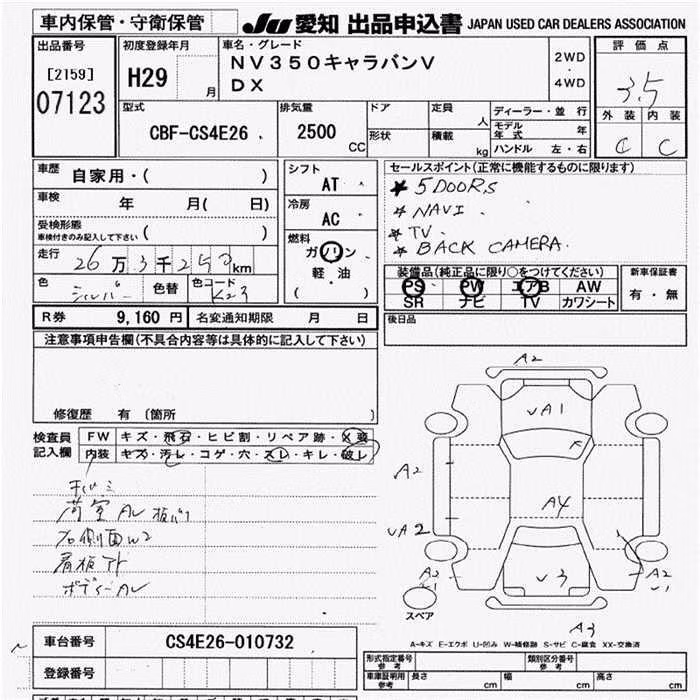 車内保管・守衛保管 JU 愛知 出品申込書 JAPAN USED CAR DEALERS ASSOCIATION
出品番号
[2159]
07123
初度登録年月
H29 月
車名・グレード
NV350キャラバンV
DX
2WD
・
4WD
評価点
3.5
外装 内装
C C
型式
CBF-CS4E26
排気量
2500
CC
ドア
形状
定員
人
積載
kg
ディーラー・並行
モデル年式 年
ハンドル 左・右
車歴
自家用・( )
車検 年 月( 日)
受検形態
車検付きのみ記入して下さい ( )
走行 26万3千250km
色 シルバー 色替 色コード K23
シフト
AT
冷房
AC
燃料
ガソリン
軽・油
( )
セールスポイント(正常に機能するものに限ります)
★ 5DOORS
★ NAVI
★ TV
★ BACK CAMERA
装備品(純正品に限り○をつけてください)
PS PW エアB AW
SR ナビ TV カワシート
新車保証書
有・無
R券 9,160円 名変通知期限 月 日
後日品
注意事項申告欄(不具合内容等は具体的に記入して下さい)
修復歴 有 〔箇所 〕
検査員
記入欄
FW キズ・飛石・ヒビ割・リペア跡・X要
内装 キズ・汚レ・コゲ・穴・スレ・キレ・破レ
荷室AL
右側面W2
看板アト
ボディーAL
A2
VA1
A2
A4
VA2
V3
A2
A2
A3
スペア
A-キズ E-エクボ U-凹み W-補修跡 S-サビ C-腐食 XX-交換済
車台番号 CS4E26-010732
登録番号
形式指定番号
参考
類別区分番号
参考
車庫証明用
参考
長さ cm 幅 cm 高さ cm